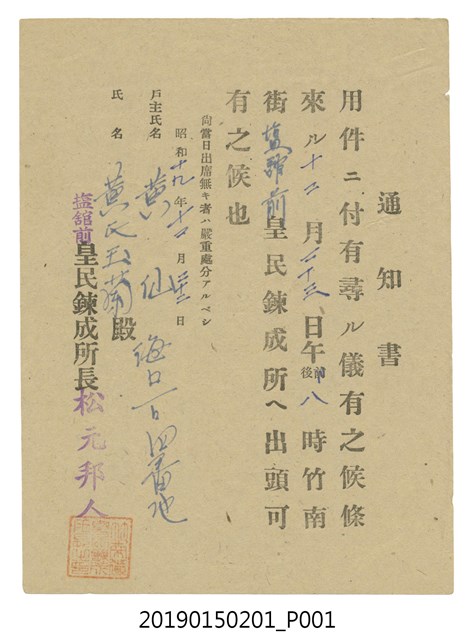 通知書
用件ニ付有尋ル儀有之候條
來ル十二月二十三日午前後八時竹南
街塩館前皇民鍊成所ヘ出頭可
有之候也
尚當日出席無キ者ハ嚴重處分アルベシ
昭和十九年十二月 日
戶主氏名 黄仙 海口一百四番地
氏名 黄氏玉蘭殿
塩舘前皇民鍊成所長松元邦人
20190150201_P001